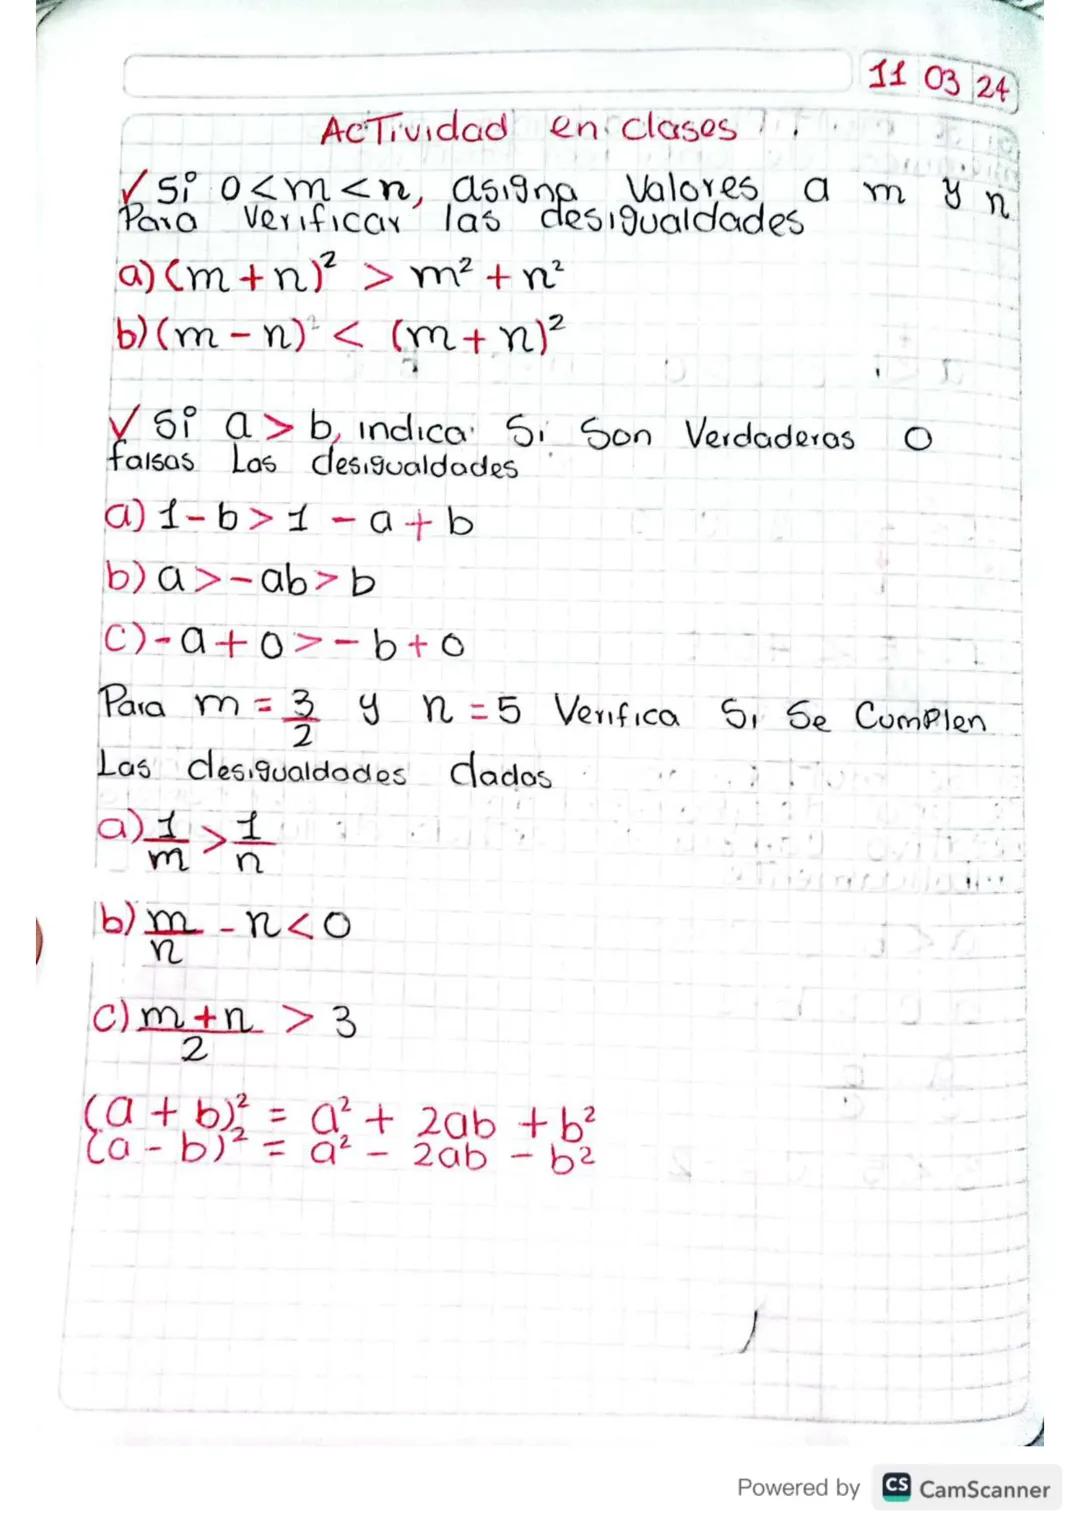 11 03 24
Actividad en clases
✓ Si 0<m<n, asigna Valores a m y n
Para Verificar las desigualdades
a) (m+n)² > m² + n²
b) (m-n)² < (m+n)²
✓ Si a > b, indica Si Son Verdaderas O
falsas Las desigualdades
a) 1-b > 1 - a + b
b) a > -ab > b
C) -a+0 > -b+0
Para m = 3/2 y n = 5 Verifica Si Se Cumplen
Las desigualdades dadas
a) 1/m > 1/n
b) m/n - n < 0
C) m+n/2 > 3
(a + b)² = a² + 2ab + b²
(a - b)² = a² - 2ab - b²
Powered by CS CamScanner